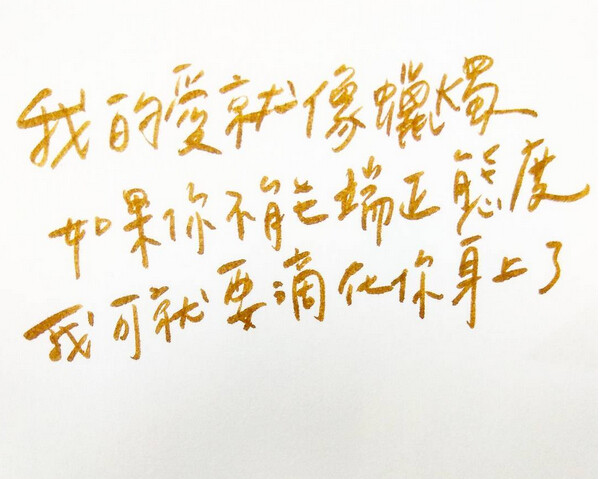 我的愛就像蠟燭
如果你不能端正態度
我可就要滴在你身上了